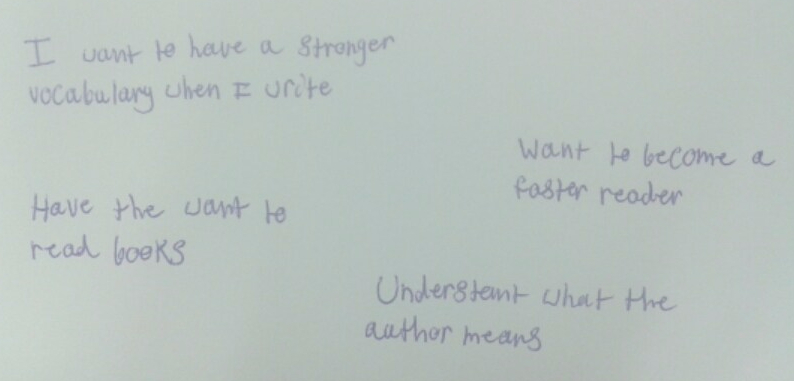 I want to have a stronger
vocabulary when I write
Want to become a
faster reader
Have the want to
read books
Understant what the
author means